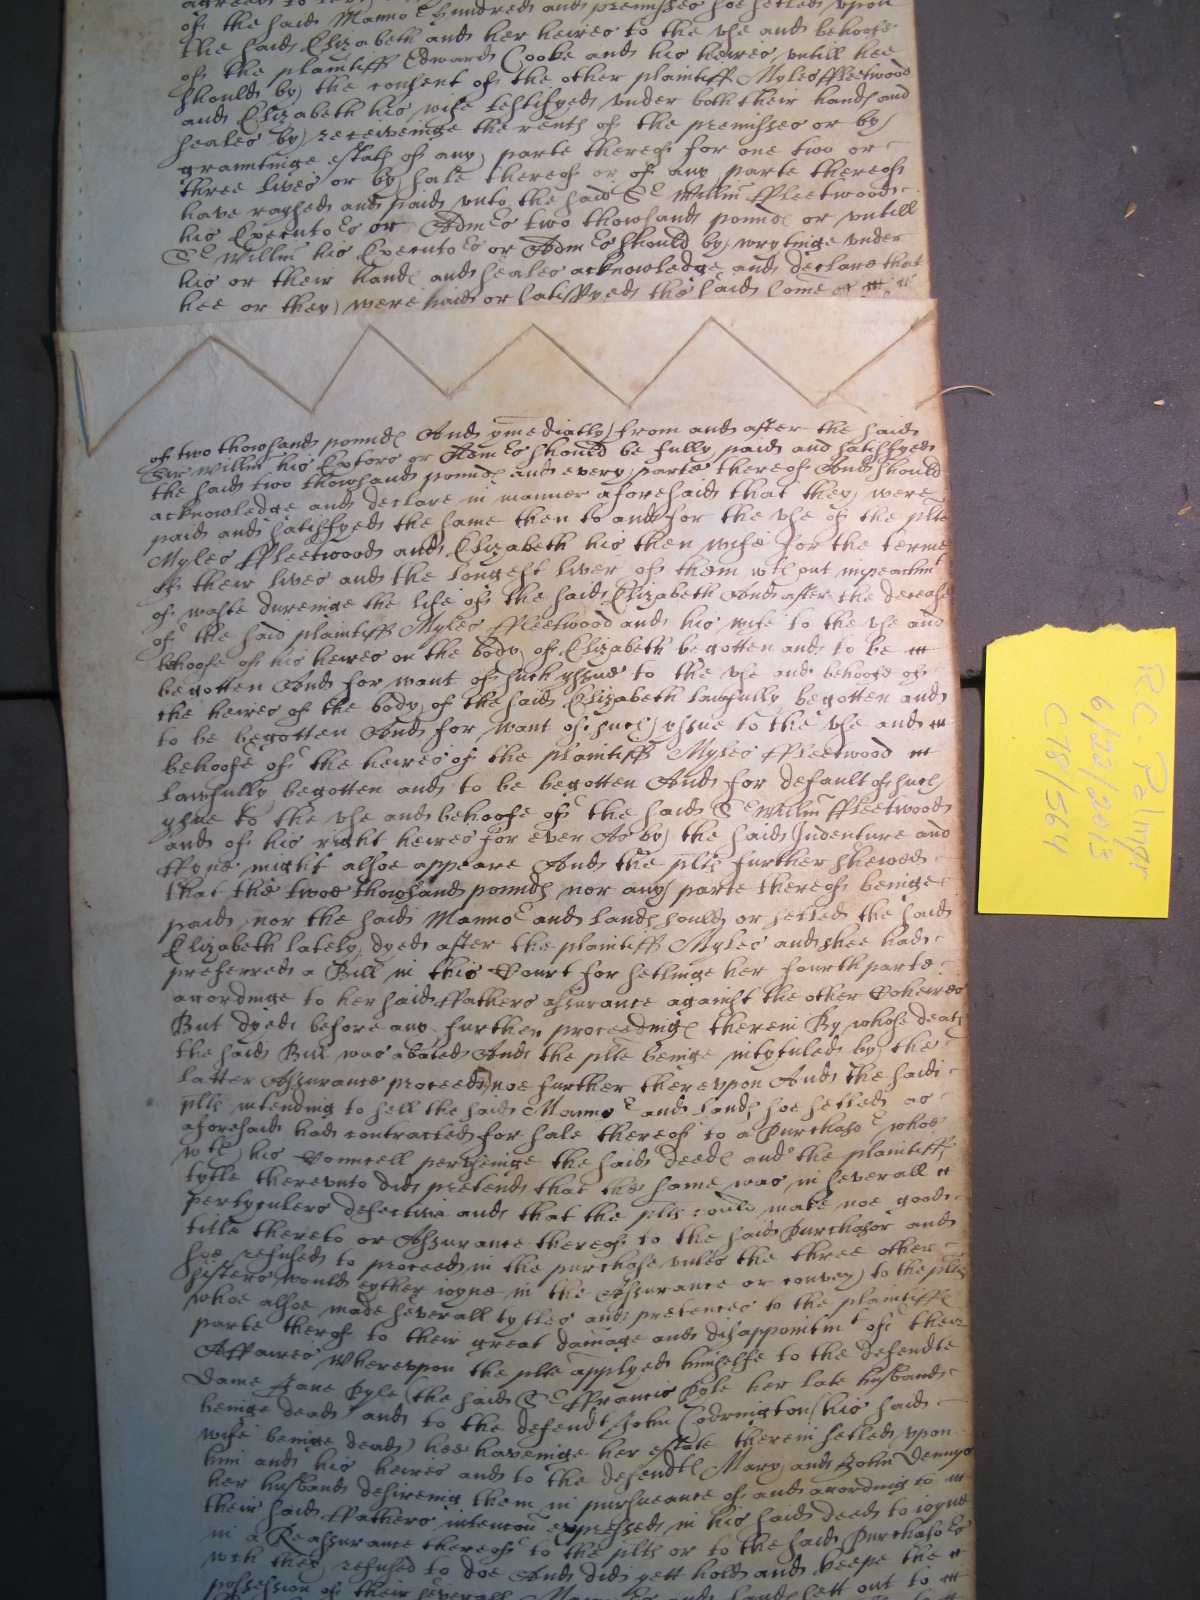 of the said Manno^r Hundred and premisses soe setled vpon
the said Elizabeth and her heires to the vse and behoofe
of the plaintiff Edward Cooke and his heires vntill hee
should by the consent of the other plaintiff Myles ffleetwood
and Elizabeth his wife testifyed vnder both their hands and
seales by receiveinge the rents of the premisses or by
grauntinge estats of any parte thereof for one two or
three lives or by sale thereof or of any parte thereof
have raysed and paid vnto the said S^r Willm ffleetwood
his Executo^rs or Adm^rs two thowsand pounds or vntill
S^r Willm his Executo^rs or Adm^rs should by wrytinge vnder
his or their hands and seales acknowledge and declare that
hee or they were paid or satisfyed the said some
of two thowsand pounds And ymediatly from and after the said
Sir Willm his Exectors or Adm^rs should be fully paid and satisfyed
the said two thowsand pounds and every parte thereof And should
acknowledge and declare in manner aforesaid that they were
paid and satisfyed the same then to and for the vse of the plte
Myles ffleetwood and Elizabeth his then wife for the terme
of their lives and the longest liver of them wthout impeachm^t
of waste dureinge the life of the said Elizabeth And after the decease
of the said plaintiff Myles ffleetwood and his wife to the vse and
behoofe of his heires on the body of Elizabeth begotten and to be
begotten And for want of such yssue to the vse and behoofe of
the heires of the body of the said Elizabeth lawfully begotten and
to be begotten And for want of such yssue to the vse and
behoofe of the heires of the plaintiff Myles ffleetwood
lawfully begotten and to be begotten And for default of such
yssue to the vse and behoofe of the said S^r Willm ffleetwood
and of his right heires for ever As by the said Indenture and
ffyne might alsoe appeare And the plts further shewed
that the twoe thowsand pounds nor any parte thereof beinge
paid nor the said Manno^r and lands sould or setled the said
Elizabeth lately dyed after the plaintiff Myles and shee had
preferred a Bill in this Court for setlinge her fourth parte
acordinge to her said ffathers assurance against the other Coheires
But dyed before any further proceedings therein By whose death
the said Bill was abated And the plte beinge intytuled by the
latter Assurance proceeded noe further therevpon And the said
plts intending to sell the said Manno^r and lands soe setled as
aforesaid had contracted for sale thereof to a Purchaso^r whoe
wth his Councell pervseinge the said deeds and the plaintiffs
tytle therevnto did pretend that the same was in severall
pertyculers defective and that the plts could make noe good
title thereto or Assurance thereof to the said Purchasor and
soe refused to proceed in the purchase vnles the three other
sisters would eyther ioyne in the Assurance or convey to the plts
whoe alsoe made severall tytles and pretences to the plaintiffs
parte therof to their great damage and disappointm^t of their
Affaires Wherevpon the plte applyed himselfe to the defendte
Dame Jane Pyle (the said S^r ffrancis Pyle her late husband
beinge dead) and to the defend^t John Codrington (his said
wife beinge dead) hee haveinge her estate therein setled vpon
him and his heires and to the defendts Mary and John Dennys
her husband desireing them in pursueance of and acording to
their said ffathers intencon expressed in his said deed to ioyne
in a Reassurance thereof to the plts or to the said Purchaso^rs
wch they refused to doe And did gett hold and keepe the
possession of their severall and lands sett out to
R.C. Palmer
6/22/2013
C78/564